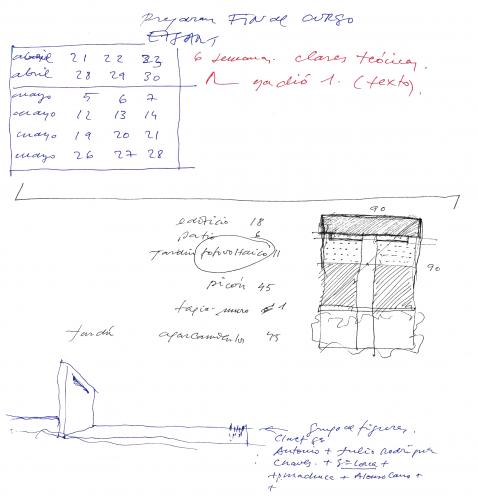 preparar FIN de CURSO
ETSAM
abril 21 22 23
abril 28 29 30
mayo 5 6 7
mayo 12 13 14
mayo 19 20 21
mayo 26 27 28
6 semanas. clases teóricas.
1. (texto).
90
90
edificio 18
patio 6
jardín fotovoltaico 11
picón 45
tapia-muro 1
jardín aparcamientos 45
grupo de figuras.
Antonio + Julio Rodríguez
Chaves. + Gª Lorca +
+ Alonso Cano +
+